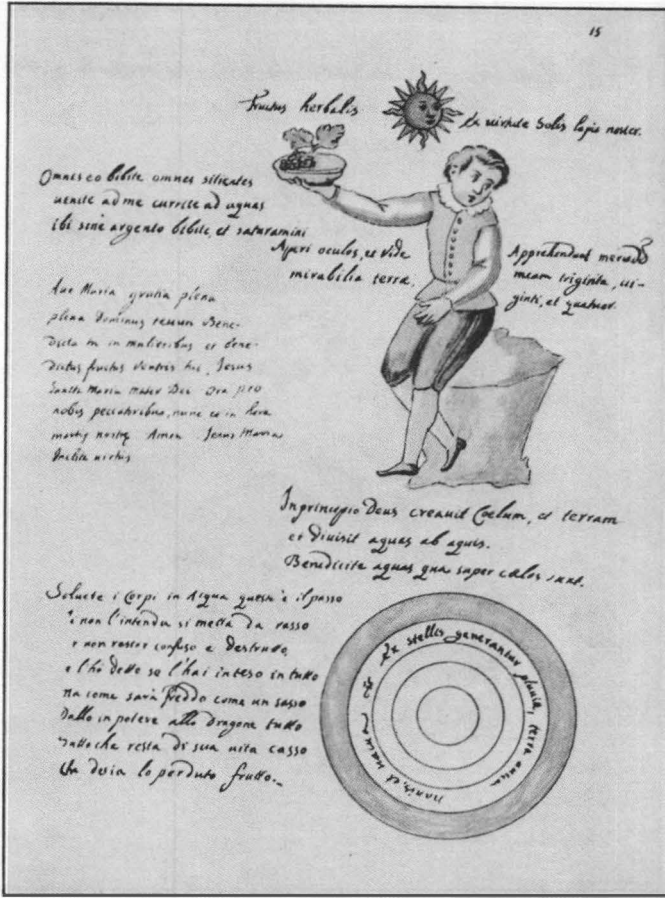 15
Fructus herbalis
Ex uirtute Solis lapis noster.
Omnes eo bibite omnes sitientes
uenite ad me currite ad aquas
ibi sine argento bibite, et saturamini
Aperi oculos, et vide
mirabilia terræ.
Apprehendant
meam triginta, ui-
ginti, et quatuor.
Aue Maria gratia plena
plena Dominus tecum Bene-
dicta tu in mulieribus et bene-
dictus fructus ventris tui, Jesus
Sancta Maria mater Dei Ora pro
nobis peccatoribus, nunc et in hora
mortis nostræ Amen Jesus Maria
Inclita uirtus
In principio Deus creauit Coelum, et terram
et diuisit aquas ab aquis.
Benedicite aquas quæ super cælos sunt.
Soluete i Corpi in Acqua questo è il passo
non l'intende si metta da
non restar confuso e destrutto,
e l'hò detto se l'hai inteso in tutto
ma come sarà freddo come un sasso
Dallo in poluere allo Dragone tutto
che resta di sua uita casso
lo perduto frutto.
Ex stellis generantur pluuia, terra